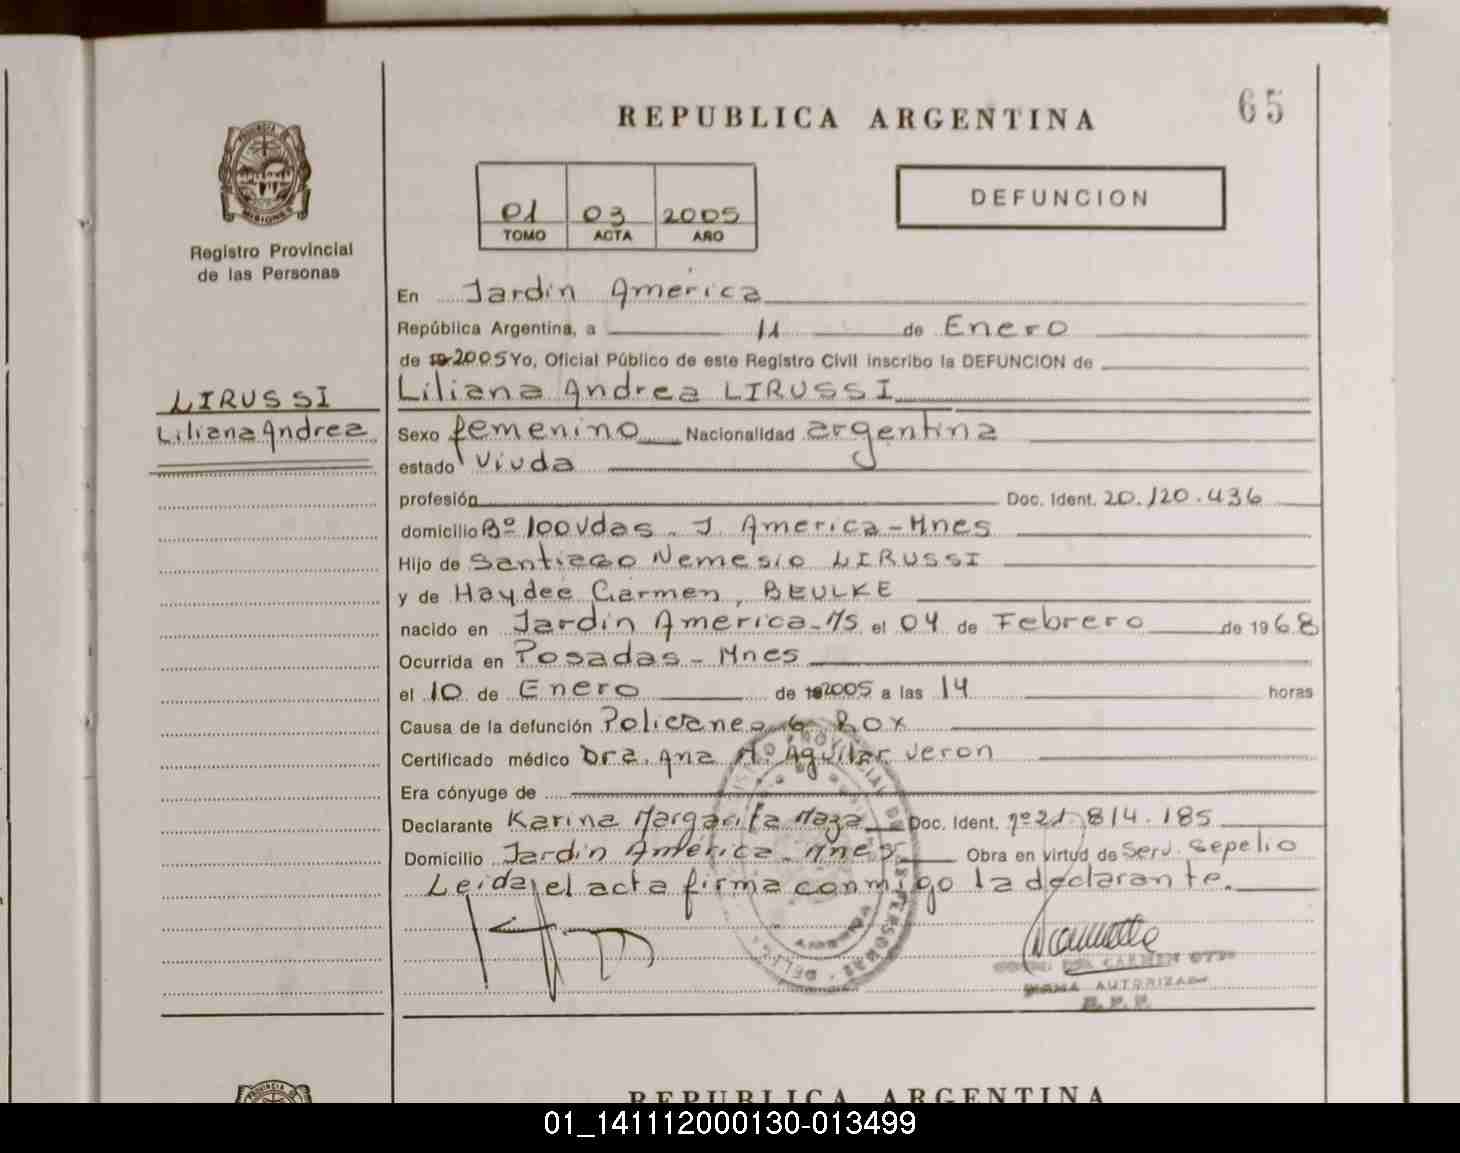 REPUBLICA ARGENTINA
65
PROVINCIA DE MISIONES
Registro Provincial
de las Personas
01 03 2005
TOMO ACTA AÑO
DEFUNCION
LIRUSSI
Liliana Andrea
En Jardin America
República Argentina, a 11 de Enero
de 19 2005 Yo, Oficial Público de este Registro Civil inscribo la DEFUNCION de
Liliana Andrea LIRUSSI
Sexo femenino Nacionalidad argentina
estado Viuda
profesión Doc. Ident. 20.120.436
domicilio Bº 100 Vdas - J. America - Mnes
Hijo de Santiago Nemesio LIRUSSI
y de Haydee Carmen, BEULKE
nacido en Jardin America - Ms el 04 de Febrero de 1968
Ocurrida en Posadas - Mnes
el 10 de Enero de 19 2005 a las 14 horas
Causa de la defunción
Certificado médico Dra. Ana M. Aguilar Veron
Era cónyuge de
Declarante Karina Margarita Maza Doc. Ident. nº 21.814.185
Domicilio Jardin América - Mnes Obra en virtud de Serv. Sepelio
Leida el acta firma conmigo la declarante.
DEL CARMEN
FIRMA AUTORIZADA
R. P. P.
REPUBLICA ARGENTINA
01_141112000130-013499